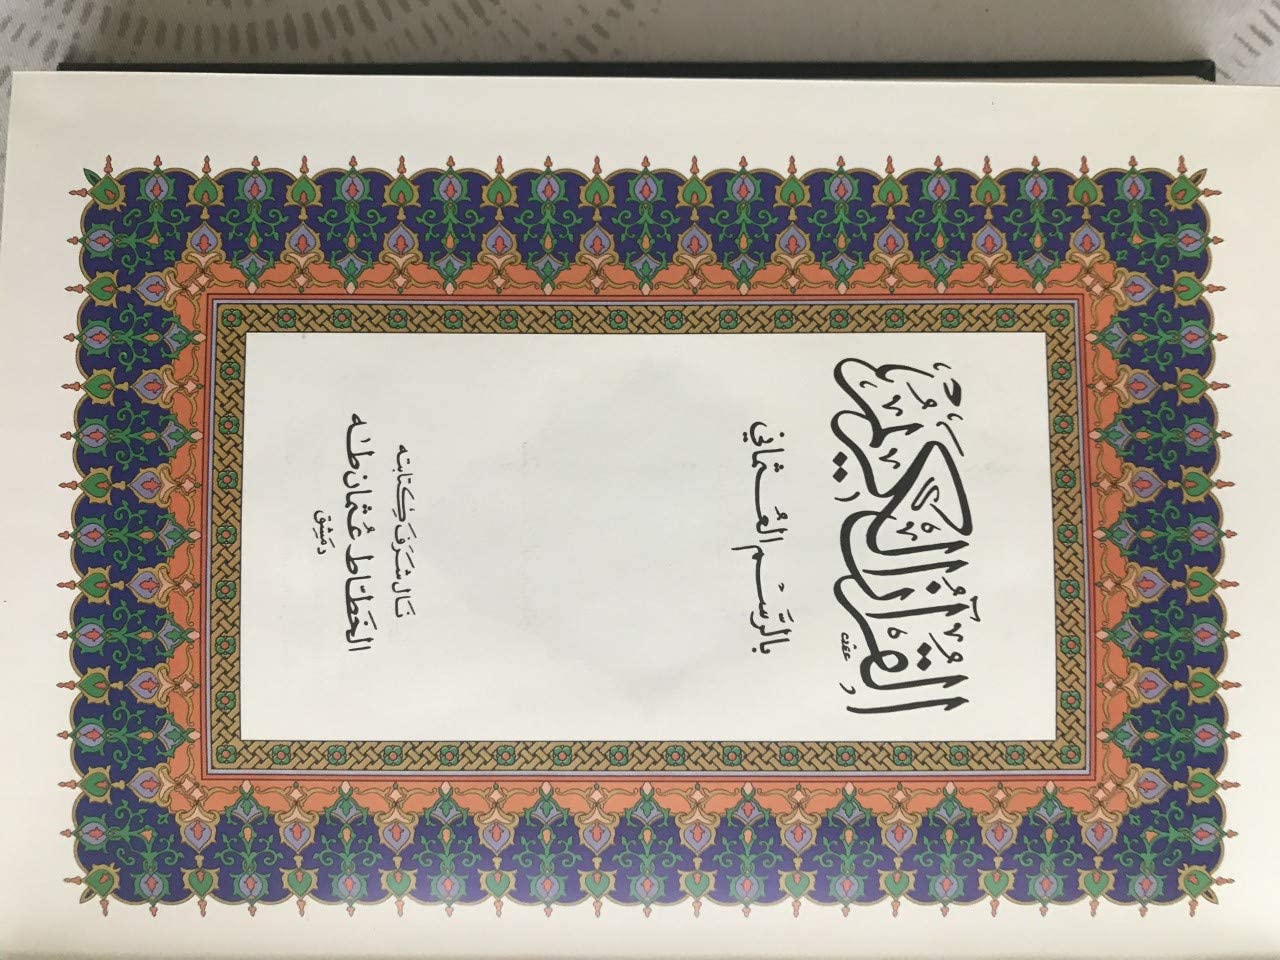 القُرْآنُ الكَرِيمُ
بِالرَّسْمِ العُثْمَانِي
نَالَ شَرَفَ كِتَابَتِه
الخَطَّاط عُثْمَان طٰه
دمَشِق